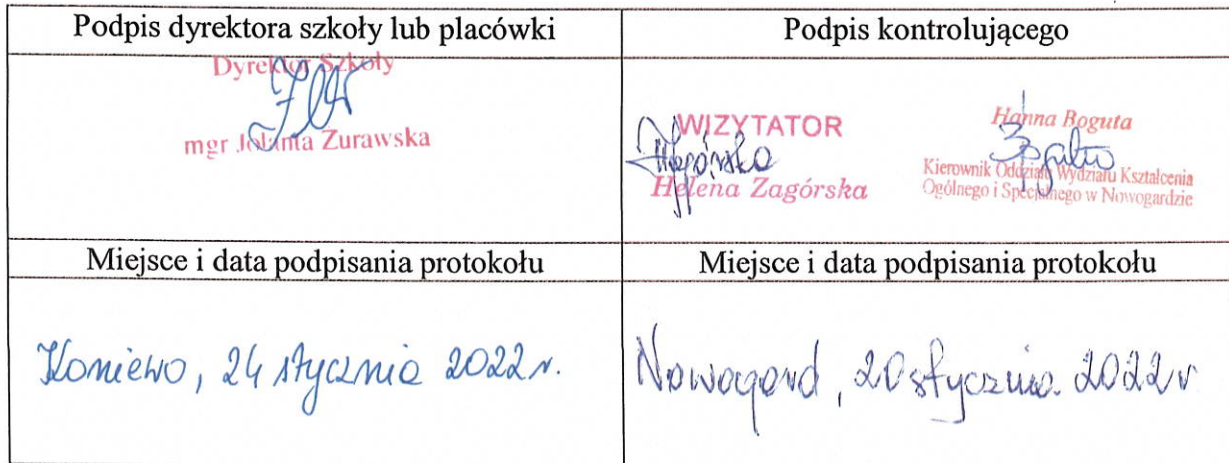 Podpis dyrektora szkoły lub placówki
Podpis kontrolującego
Dyrektor Szkoły
mgr Jolanta Żurawska
WIZYTATOR
Helena Zagórska
Hanna Boguta
Kierownik Oddziału Wydziału Kształcenia
Ogólnego i Specjalnego w Nowogardzie
Miejsce i data podpisania protokołu
Miejsce i data podpisania protokołu
Koniewo, 24 stycznia 2022 r.
Nowogard, 20 stycznia 2022 r